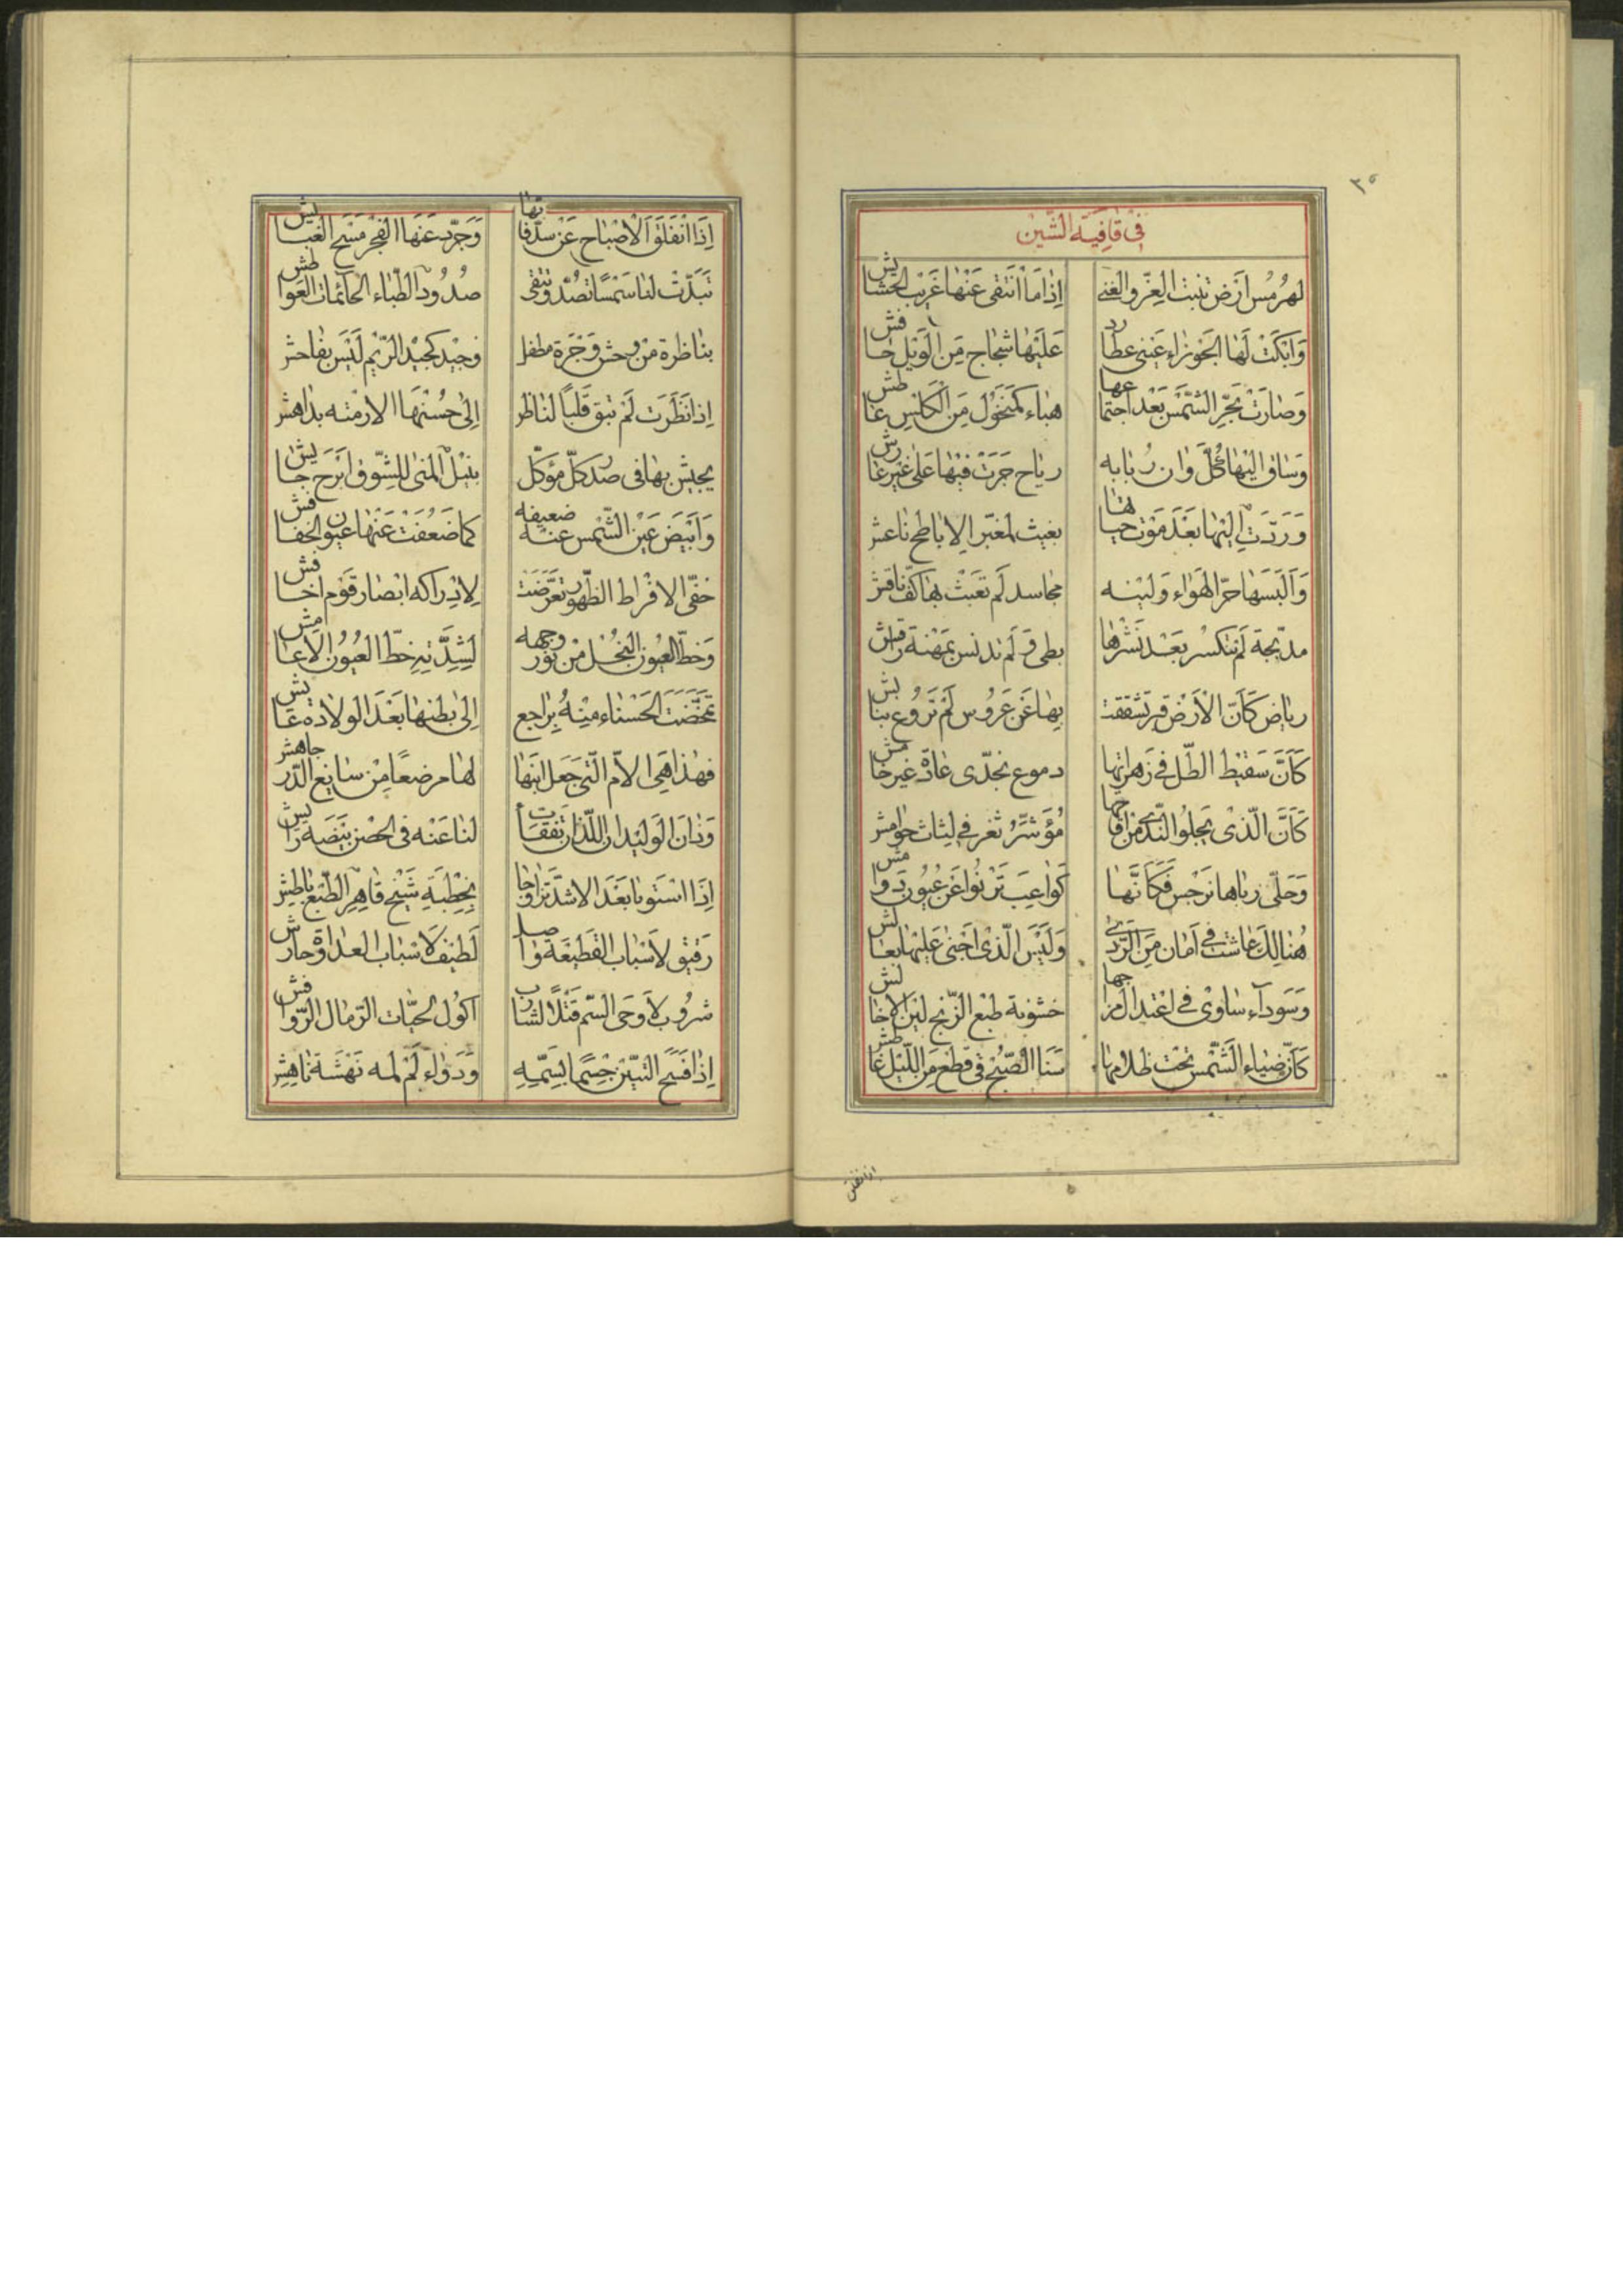 ٣٥
في قافية الشين
لهرمس ارض تنبت العز والغنى اذا ما انتقى عنها غريب الحشايش
وابكت لها الجوزاء عيني عطارد عليها ثجاج من الوبل حافش
وصارت بحر الشمس بعد اجتماعها هباء كمنخول من الكلس غاطش
وساق اليها كل وان ربابه رياح جرت فيها على غير غارش
وردت اليها بعد موت حياتها بغيث لمغبر الاباطح ناعش
والبسها حر الهواء ولينه مجاسد لم تعبث بها كف نافش
مدبجة لم تنكسر بعد نشرها بطي ولم تدنس بمهنة راقش
رياض كأن الأرض فيه تشققت بها عن عروس لم تروع بنابش
كأن سقيط الطل في زهراتها دموع بخدي غادة غير خامش
كأن الذي يجلو الندى من اقاحها مؤشر ثغر في لثات حوامش
وحلى رباها نرجس فكأنها كواعب ترنوا عن عيون دوامش
هنالك عاشت في أمان من الردى وليس الذي اجنى عليها بعالش
وسوداء ساوى في اعتدال مزاجها خشونة طبع الزنج لين الاخالش
كأن ضياء الشمس تحت ظلامها سنا الصبح في قطع من الليل غاطش
اذا انفلق
اذا انفلق الاصباح عن سدفاتها وجرد عنها الفجر مسح الغبايش
تبدت لنا شمسا تصد وتتقي صدود الظباء الحائمات العواطش
بناظرة من وحش وجرة مطفل وجيد كجيد الريم ليس بفاحش
اذا نظرت لم تبق قلبا لناظر الى حسنها الا رمته بداهش
يجيش بها في صدر كل مؤكل بنيل المنى للشوق ابرح جايش
وابيض عين الشمس عنه ضعيفه كما ضعفت عنها عيون الخفافش
خفي لافراط الظهور تعرضت لادراكه ابصار قوم اخافش
وحظ العيون النجل من نور وجهه لشدته حظ العيون الاعامش
تمخضت الحسناء منه براجع الى بطنها بعد الولادة عايش
فهذا هي الام التي جعل ابنها لها مرضعا من سايغ الدر جاهش
وذان الوليدان اللذان تفقأت لنا عنه في الحضن بيضة رايش
اذا استوتا بعد الاشد تزاوجا بخطبة شيخ قاهر الطبع باطش
رفيق لاسباب القطيعة واصل لطيف لاسباب العداوة حارش
شروب لأوحى السم قتلا لشارب اكول لحيات الرمال الروافش
اذا فسح التنين جسما بسمه ودواء لم لمه نهشة ناهش